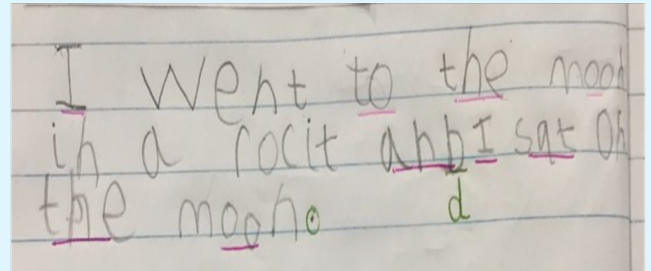 I went to the moon
in a rocit anb I sat on
the moon.
d